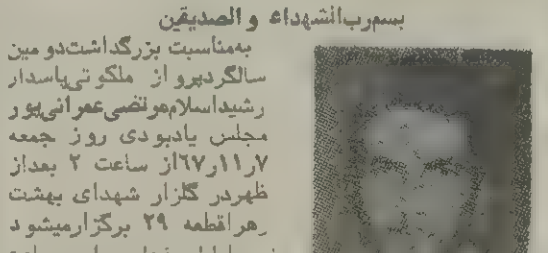 بسم‌رب‌الشهداء والصدیقین
به‌مناسبت بزرگداشت‌دومین
سالگردپرواز ملکوتی‌پاسدار
رشیداسلام‌مرتضی‌عمرانی‌پور
مجلس یادبودی روز جمعه
۷ر۱۱ر۶۷از ساعت ۲ بعداز
ظهردر گلزار شهدای بهشت
زهراقطعه ۲۹ برگزارمیشود